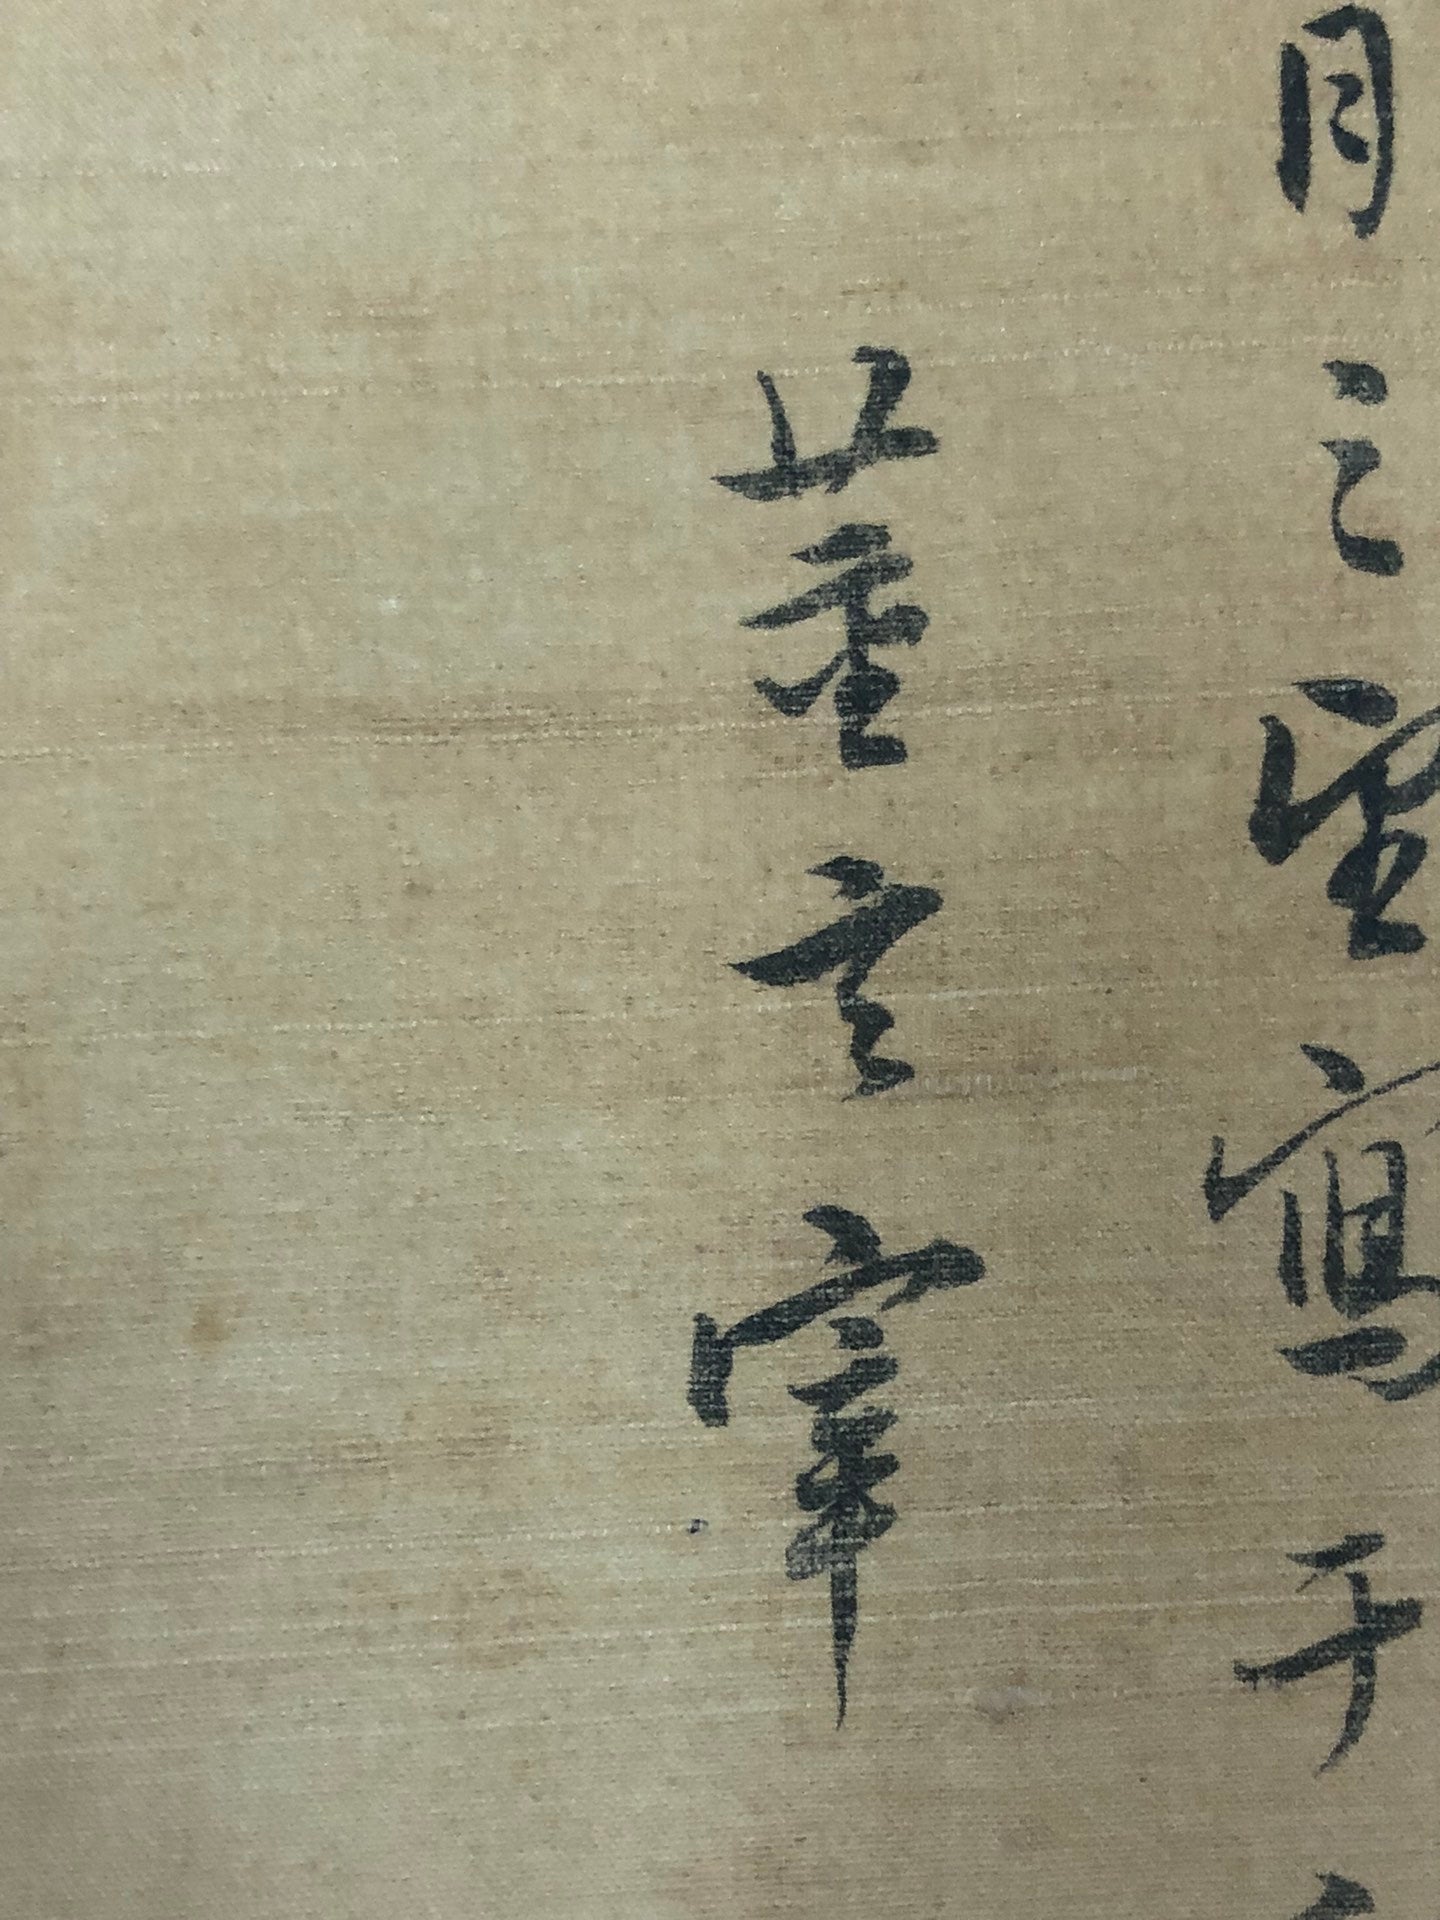 月之望寫于
董玄宰